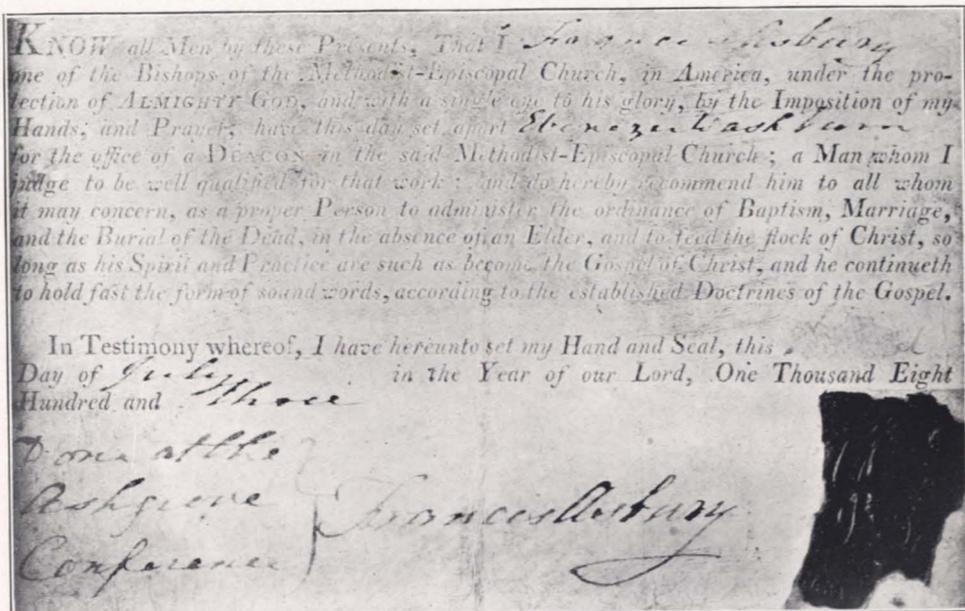 KNOW all Men by these Presents, That I Francis Asbury
one of the Bishops of the Methodist-Episcopal Church, in America, under the pro-
tection of ALMIGHTY GOD, and with a single eye to his glory, by the Imposition of my
Hands, and Prayer, have this day set apart Ebenezer Washburn
for the office of a DEACON in the said Methodist-Episcopal Church; a Man whom I
judge to be well qualified for that work; and do hereby recommend him to all whom
it may concern, as a proper Person to administer the ordinance of Baptism, Marriage,
and the Burial of the Dead, in the absence of an Elder, and to feed the flock of Christ, so
long as his Spirit and Practice are such as become the Gospel of Christ, and he continueth
to hold fast the form of sound words, according to the established Doctrines of the Gospel.
In Testimony whereof, I have hereunto set my Hand and Seal, this
Day of July in the Year of our Lord, One Thousand Eight
Hundred and three
Done at the
Ashgrove
Conference
Francis Asbury